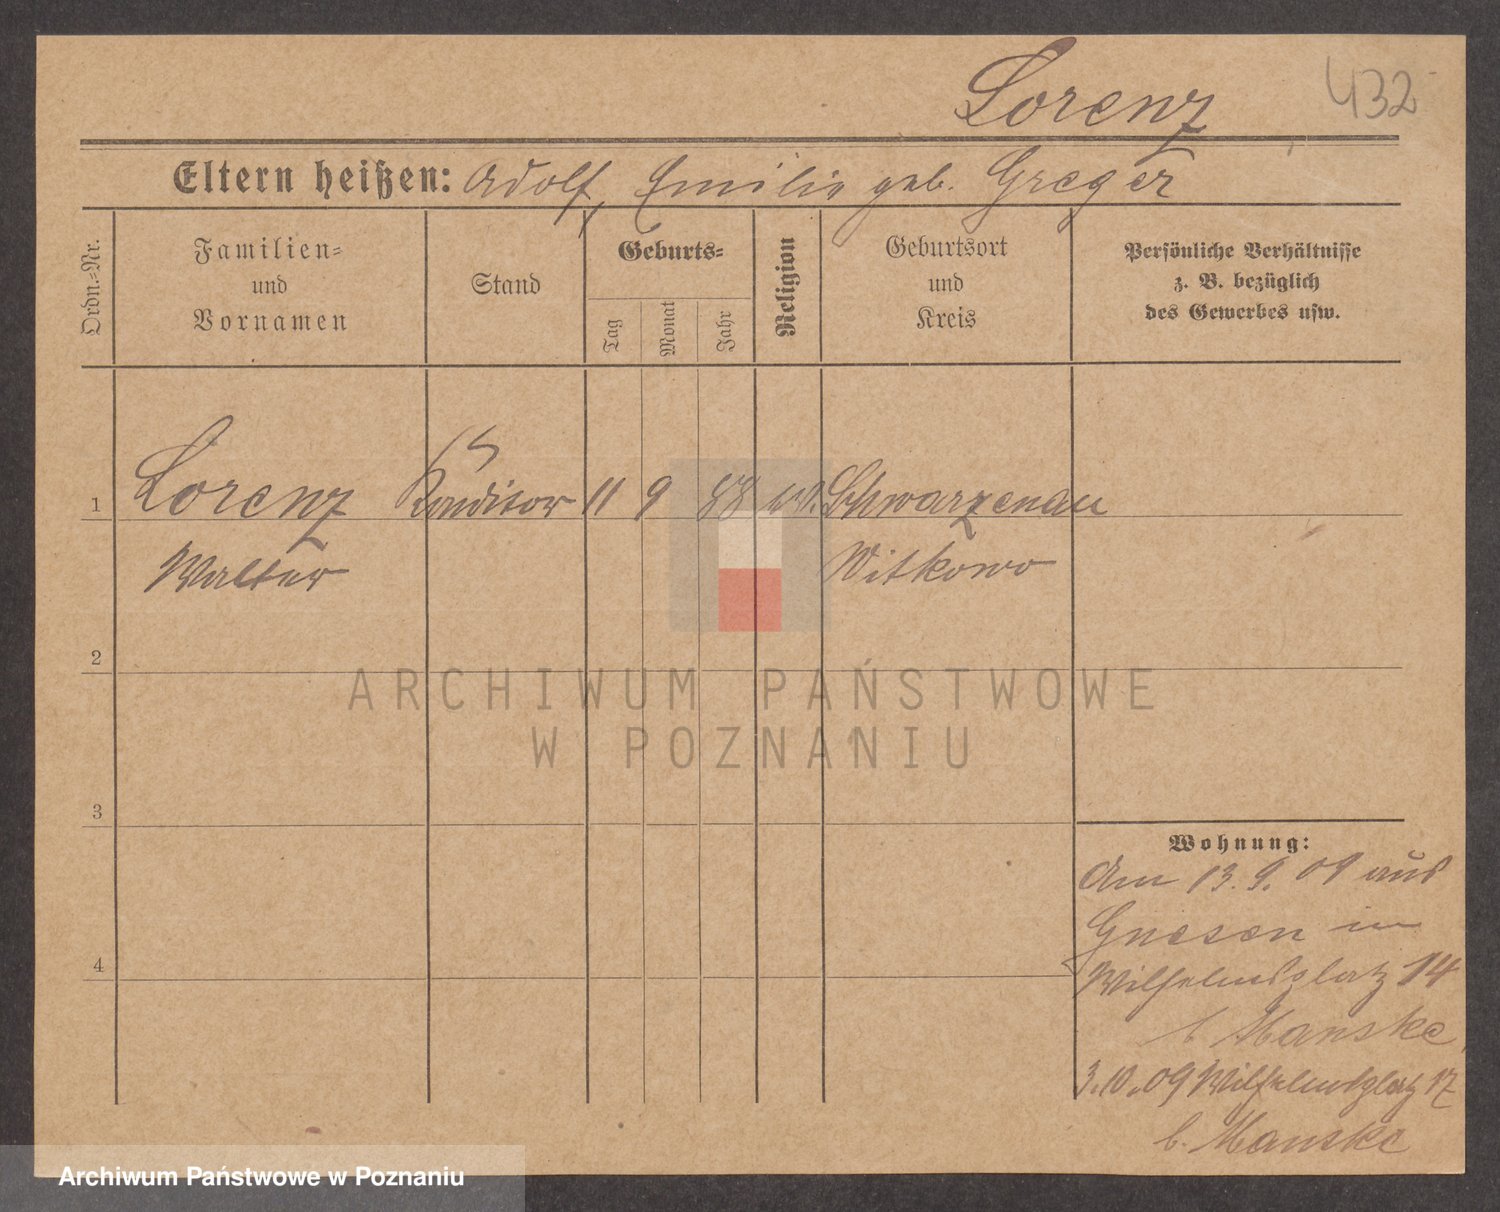 Lorenz
432
Eltern heißen: Adolf, Emilie geb. Greger
Ordn.-Nr.
Familien- und Vornamen
Stand
Geburts-
Tag
Monat
Jahr
Religion
Geburtsort und Kreis
Persönliche Verhältnisse z. B. bezüglich des Gewerbes usw.
1 Lorenz Konditor 11 9 88 Schwarzenau
Walter Witkowo
2
3
4
Wohnung:
Am 13.9.09 aus
Gnesen in
Wilhelmsplatz 14
b. Manske
3.10.09 Wilhelmsplatz 17
b. Manske
ARCHIWUM PAŃSTWOWE
W POZNANIU
Archiwum Państwowe w Poznaniu